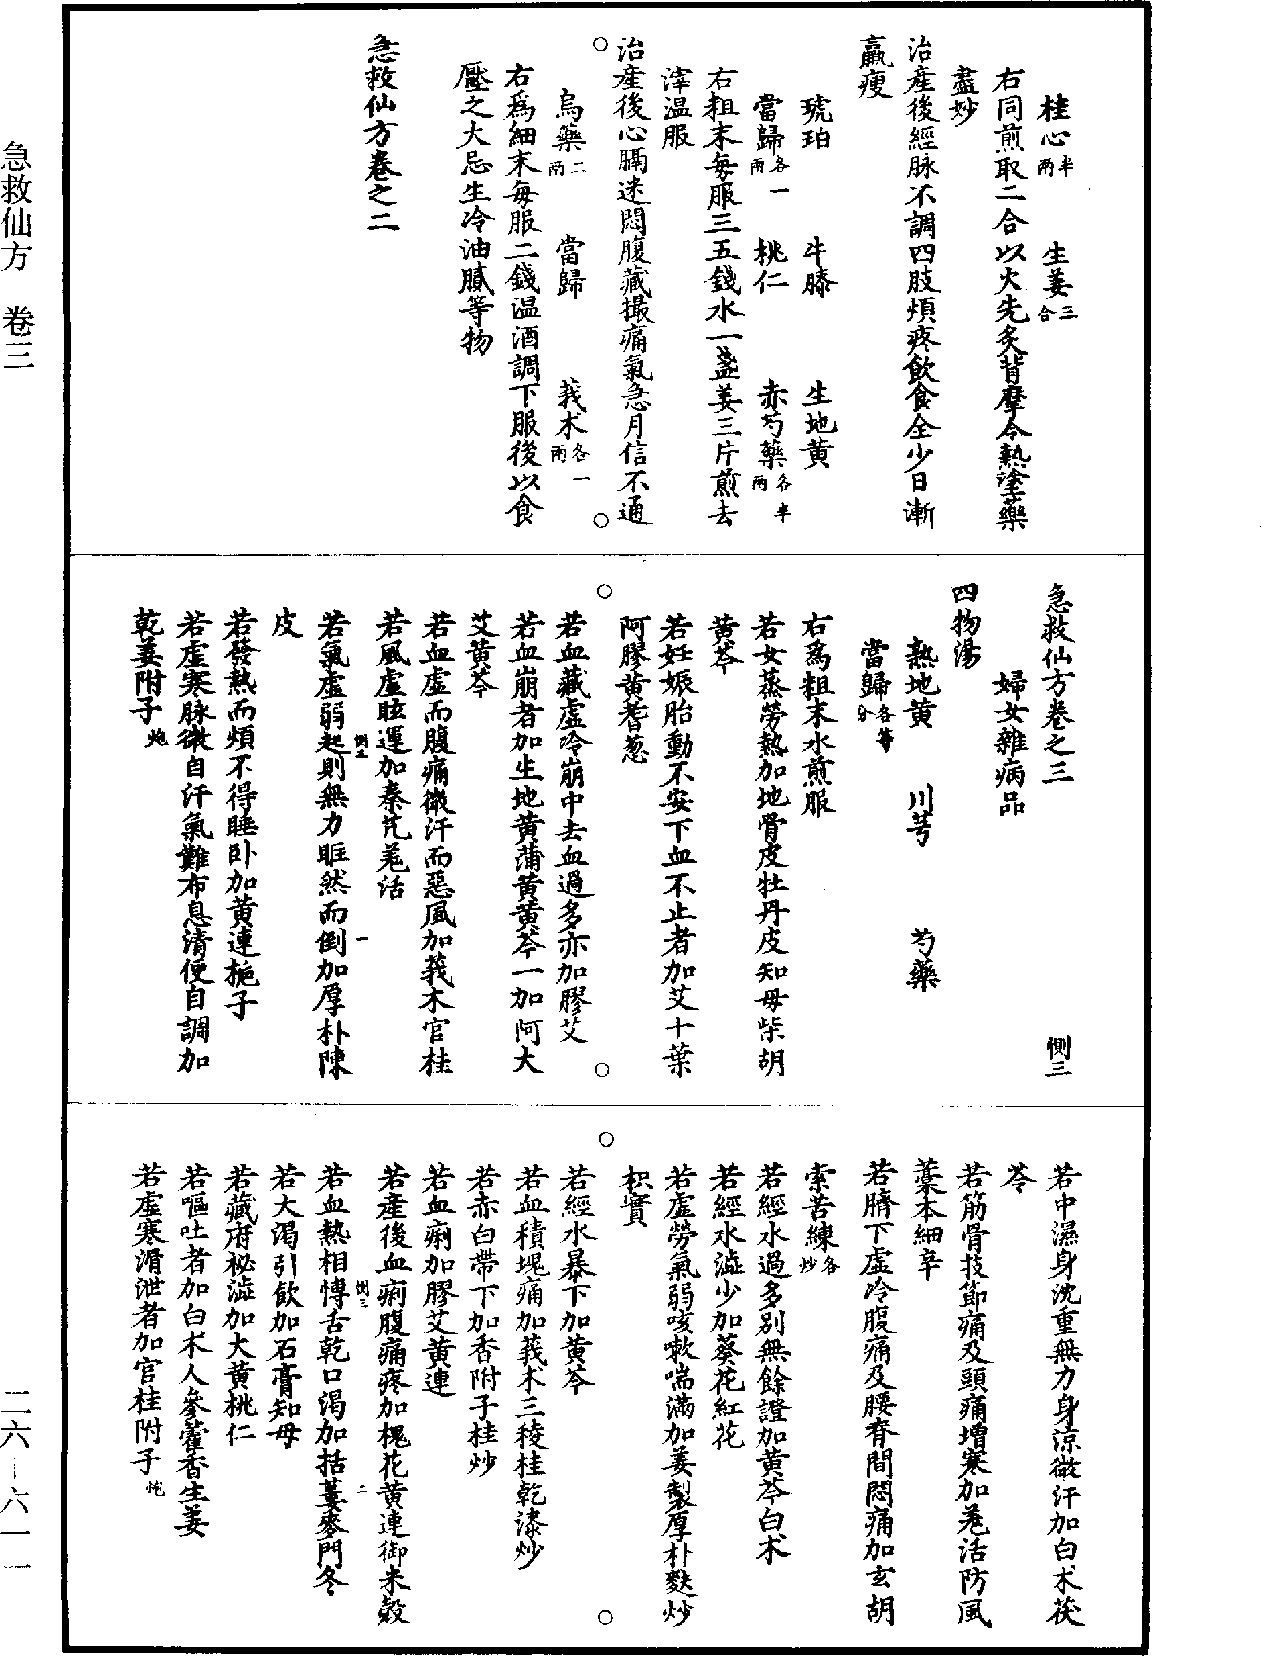 桂心半兩　生姜三合
右同煎取二合以火先炙背摩令熱塗藥
盡妙
治產後經脉不調四肢煩疼飲食全少日漸
羸瘦
琥珀　牛膝　生地黃
當歸各一兩　桃仁　赤芍藥各半兩
右粗末每服三五錢水一盞姜三片煎去
滓温服
治產後心膈迷悶腹藏撮痛氣急月信不通
烏藥二兩　當歸　莪朮各一兩
右為細末每服二錢温酒調下服後以食
壓之大忌生冷油膩等物
急救仙方卷之二
急救仙方卷之三　惻三
婦女雜病品
四物湯
熟地黃　川芎　芍藥
當歸各等分
右為粗末水煎服
若女蒸勞熱加地骨皮牡丹皮知母柴胡
黃芩
若妊娠胎動不安下血不止者加艾十葉
阿膠黃耆葱
若血藏虛冷崩中去血過多亦加膠艾
若血崩者加生地黃蒲黃黃芩一加阿大
艾黃芩
若血虛而腹痛微汗而惡風加莪朮官桂
若風虛眩運加秦艽羌活
惻三　一
若氣虛弱起則無力眶然而倒加厚朴陳
皮
若發熱而煩不得睡卧加黃連梔子
若虛寒脉微自汗氣難布息清便自調加
乾姜附子炮
若中濕身沈重無力身涼微汗加白朮茯
苓
若筋骨技節痛及頭痛增寒加羌活防風
藁本細辛
若臍下虛冷腹痛及腰脊間悶痛加玄胡
索苦練各炒
若經水過多别無餘證加黃芩白朮
若經水澁少加葵花紅花
若虛勞氣弱咳嗽喘滿加姜製厚朴麩炒
枳實
若經水暴下加黃芩
若血積塊痛加莪朮三稜桂乾漆炒
若赤白帶下加香附子桂炒
若血痢加膠艾黃連
若產後血痢腹痛疼加槐花黃連御米殼
惻三　二
若血熱相慱舌乾口渴加括蔞麥門冬
若大渴引飲加石膏知母
若藏府祕澁加大黃桃仁
若嘔吐者加白朮人參藿香生姜
若虛寒滑泄者加官桂附子炮
急救仙方　卷三
二六－六一一